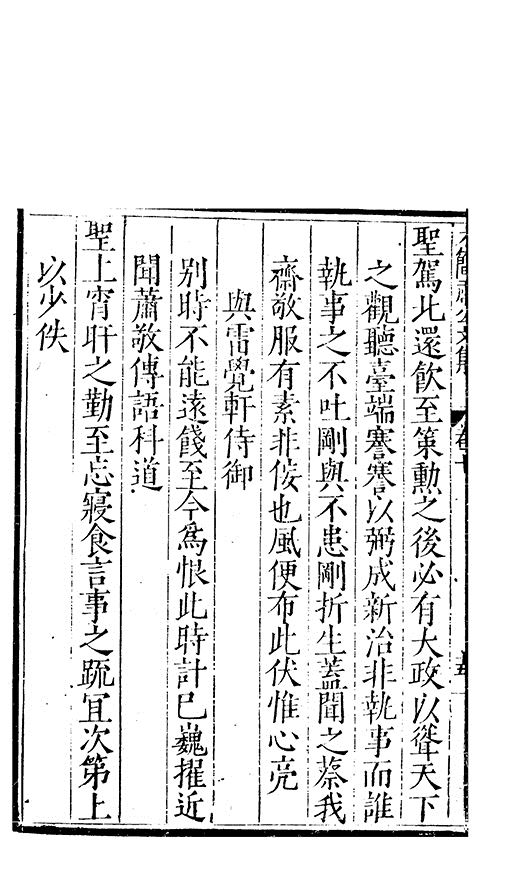 聖駕北還飲至策勳之後必有大政以聳天下
之觀聽臺端謇謇以弼成新治非執事而誰
執事之不吐剛與不患剛折生蓋聞之蔡我
齋敬服有素非佞也風便布此伏惟心亮
與雷覺軒侍御
別時不能遠餞至今爲恨此時計已巍擢近
聞蕭敬傳語科道
聖上宵旰之勤至忘寢食言事之䟽宜次第上
以少佚